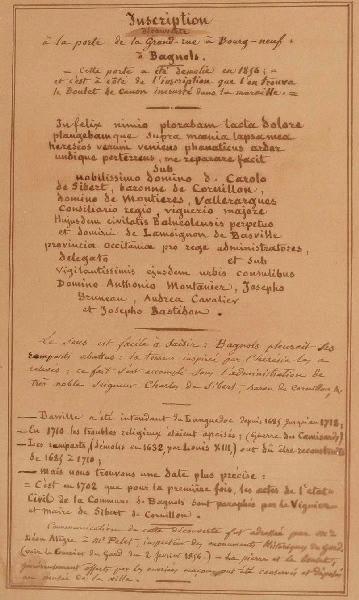 Inscription
découverte
à la porte de la Grand-rue à Bourg-neuf
à Bagnols.
— Cette porte a été démolie en 1856; —
et c'est à côté de l'inscription que l'on trouva
le boulet de canon incrusté dans la muraille. =
Infelix nimio plorabam tacta dolore
plangebamque supra mænia lapsa mea
hereseos verum veniens phanaticus ardor
undique perterrens, me reparare facit
sub
nobilissimo domino D. Carolo
de Sibert, baronne de Cornillon,
domino de Montieres, Vallerargues
Consiliario regio, viguerio majore
Hujusdem civitatis Balneolensis perpetuo
et domini de Lamoignon de Basville
provincia Occitaniæ pro rege administratores,
delegato et sub
vigilantissimis ejusdem urbis consulibus
Domino Anthonio Montanier, Josepho
Bruneau, Andrea Cavalier
et Josepho Bastidon.
Le sens est facile à saisir: Bagnols pleurait ses
remparts abattus: la terreur inspirée par l'hérésie les a
relevés; ce fait s'est accompli sous l'administration de
très noble Seigneur Charles de Sibert, baron de Cornillon, &
— Basville a été intendant du Languedoc depuis 1685 jusqu'en 1718;
— En 1710 les troubles religieux étaient apaisés; (Guerre des Camisards)
— Les remparts (démolis en 1632, par Louis XIII) ont dû être reconstruits
de 1685 à 1710;
— Mais nous trouvons une date plus précise:
= C'est en 1702 que pour la première fois, les actes de l'état
Civil de la Commune de Bagnols sont paraphés par le Viguier
et Maire de Sibert de Cornillon.
Communication de cette découverte fut adressée par Mr
Léon Alègre à Mr Pelet, inspecteur des monuments historiques du Gard,
(voir le Courrier du Gard du 2 février 1856.) — La pierre et le boulet,
généreusement offerts par les ouvriers maçons ont été conservés et déposés
au musée de la ville.